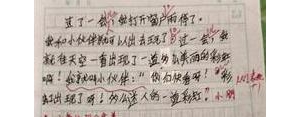 过了一会，我打开窗户雨停了。
我和小伙伴就可以出去玩了。过一会，我
就在天空一看出现了一道多么美丽的彩虹
啊！我就叫小伙伴：“你们快看呀！彩
虹出现了呀！多么迷人的一道彩虹。”小明